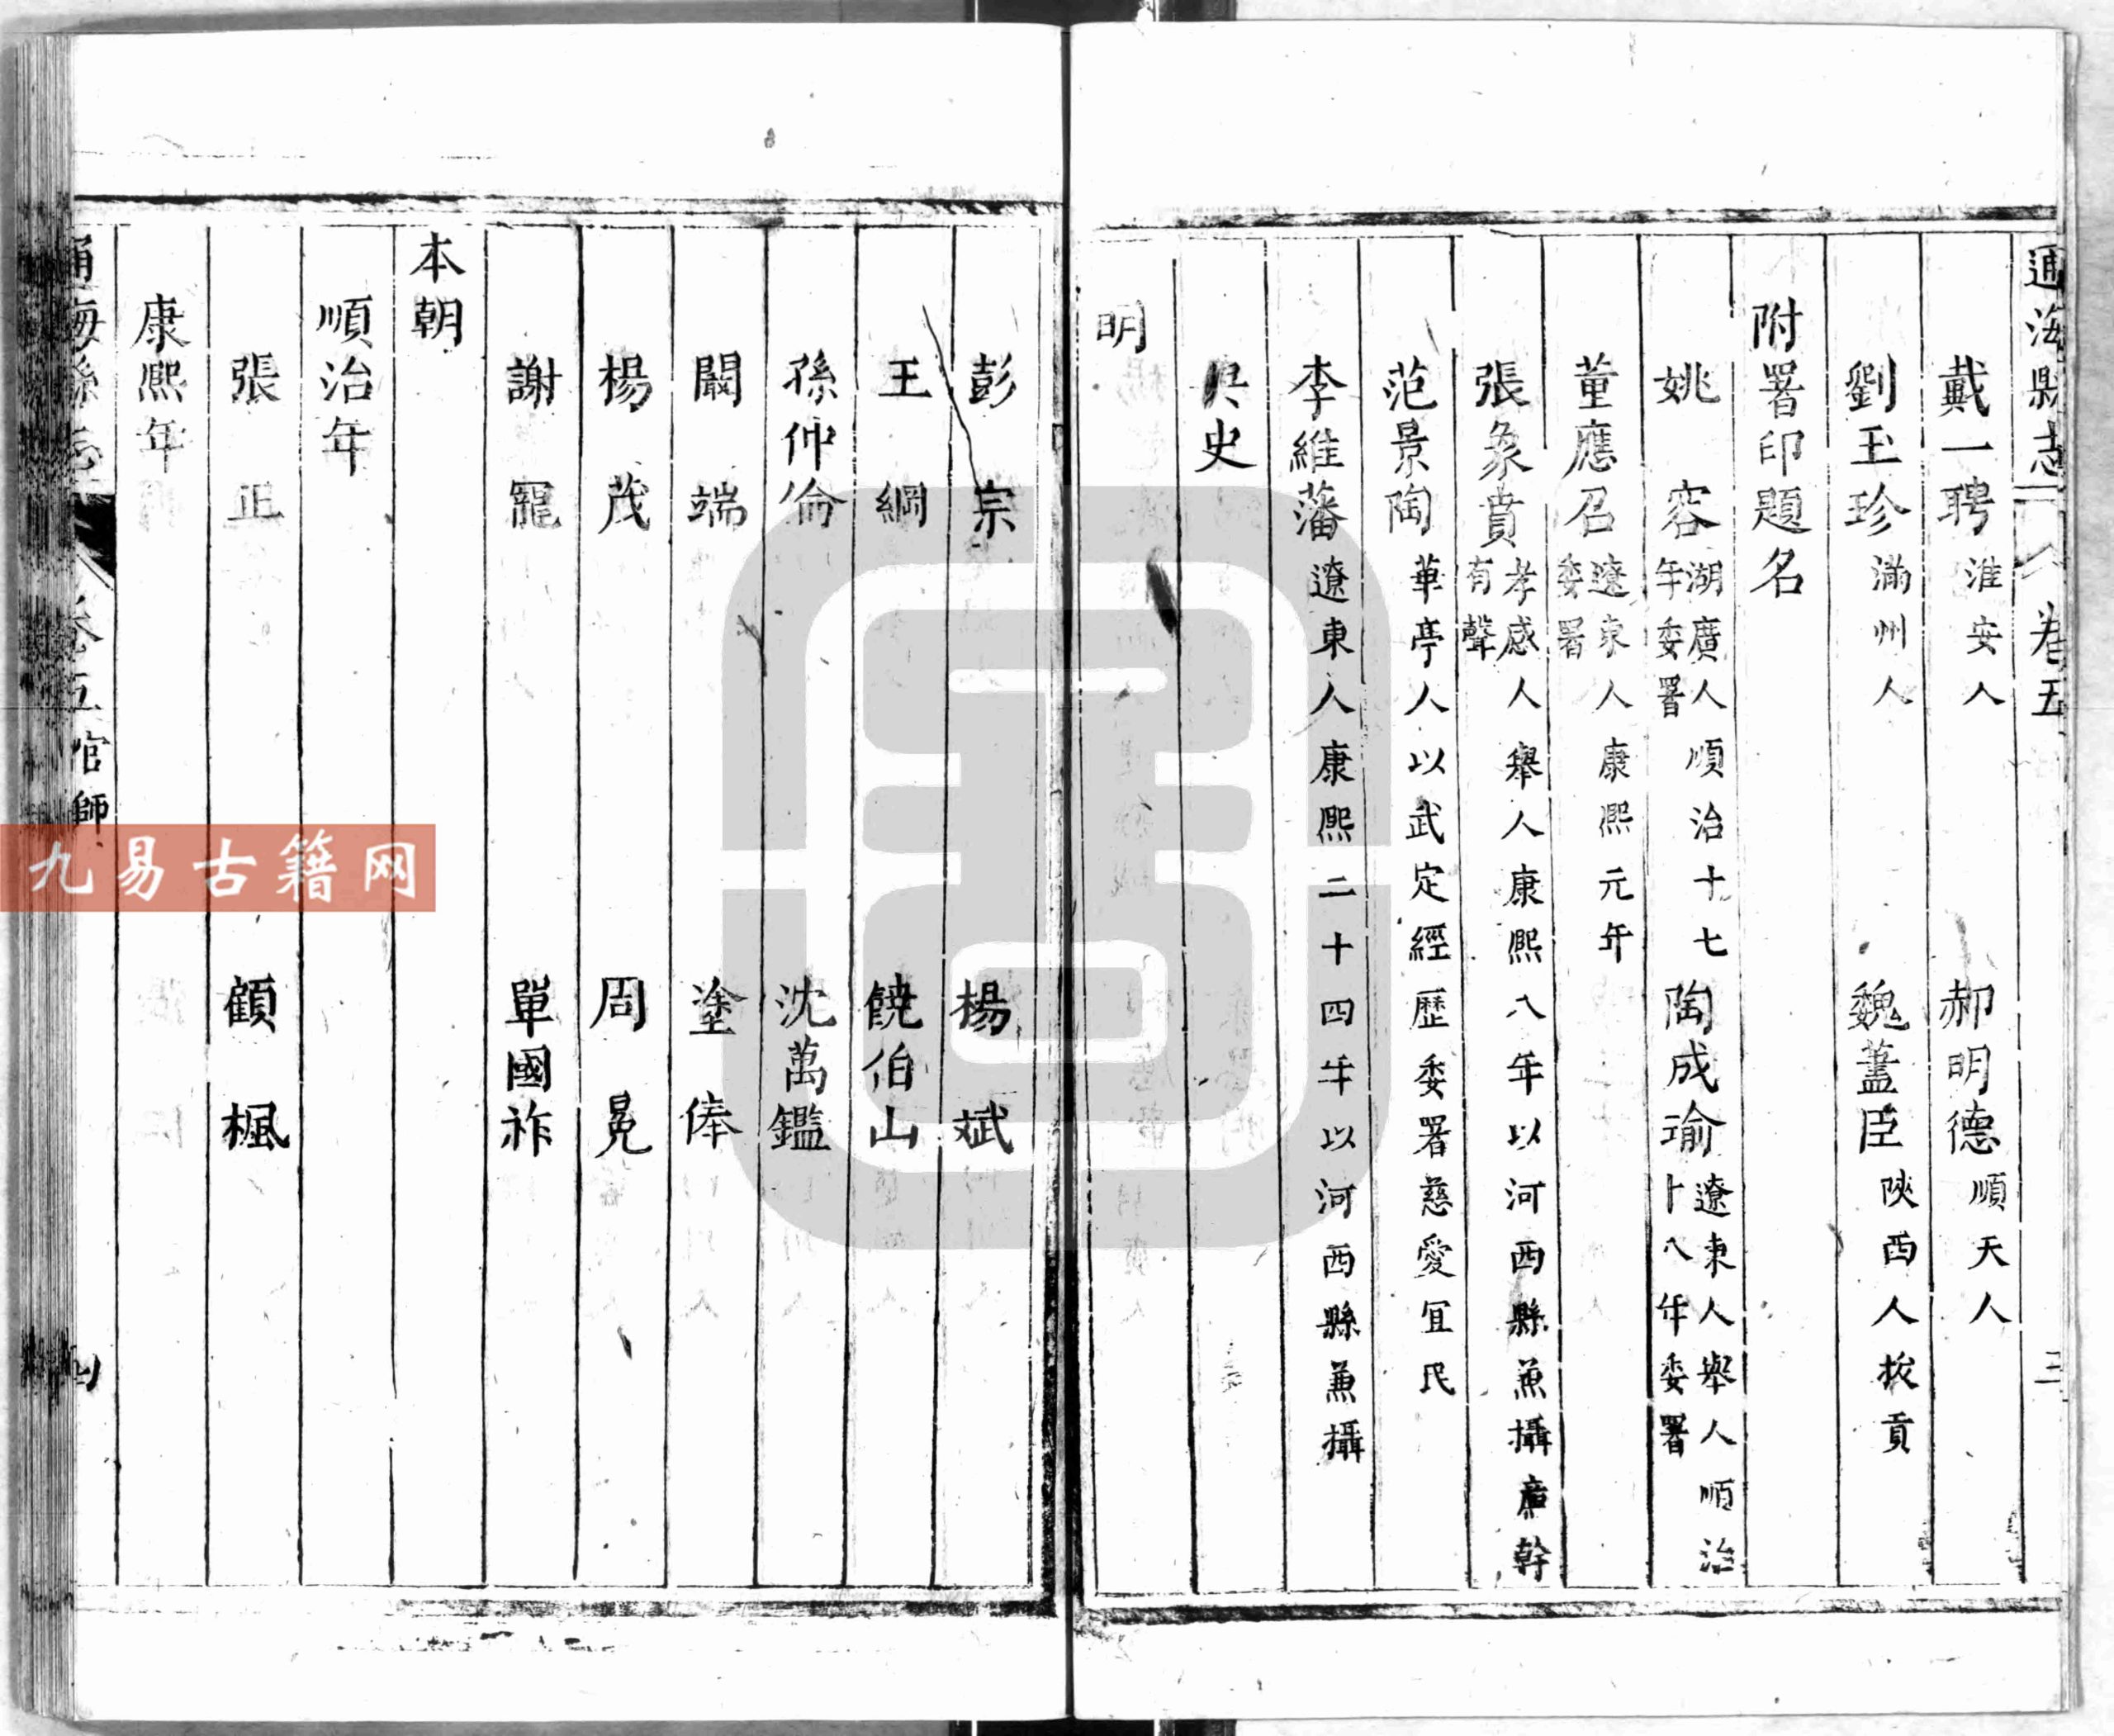 通海縣志 卷五 三
戴一聘 淮安人 郝明德 順天人
劉玉珍 滿州人 魏藎臣 陝西人拔貢
附署印題名
姚容 湖廣人順治十七年委署 陶成瑜 遼東人舉人順治十八年委署
董應召 遼東人康熙元年委署
張象賁 孝感人舉人康熙八年以河西縣兼攝廉幹有聲
范景陶 華亭人以武定經歷委署慈愛宜民
李維藩 遼東人康熙二十四年以河西縣兼攝
史
明
彭宗 楊斌
王綱 饒伯山
孫仲倫 沈萬鑑
闞端 塗俸
楊茂 周冕
謝寵 單國祚
本朝
順治年
張正 顧楓
康熙年
通海縣志 卷五 官師 四
九易古籍网